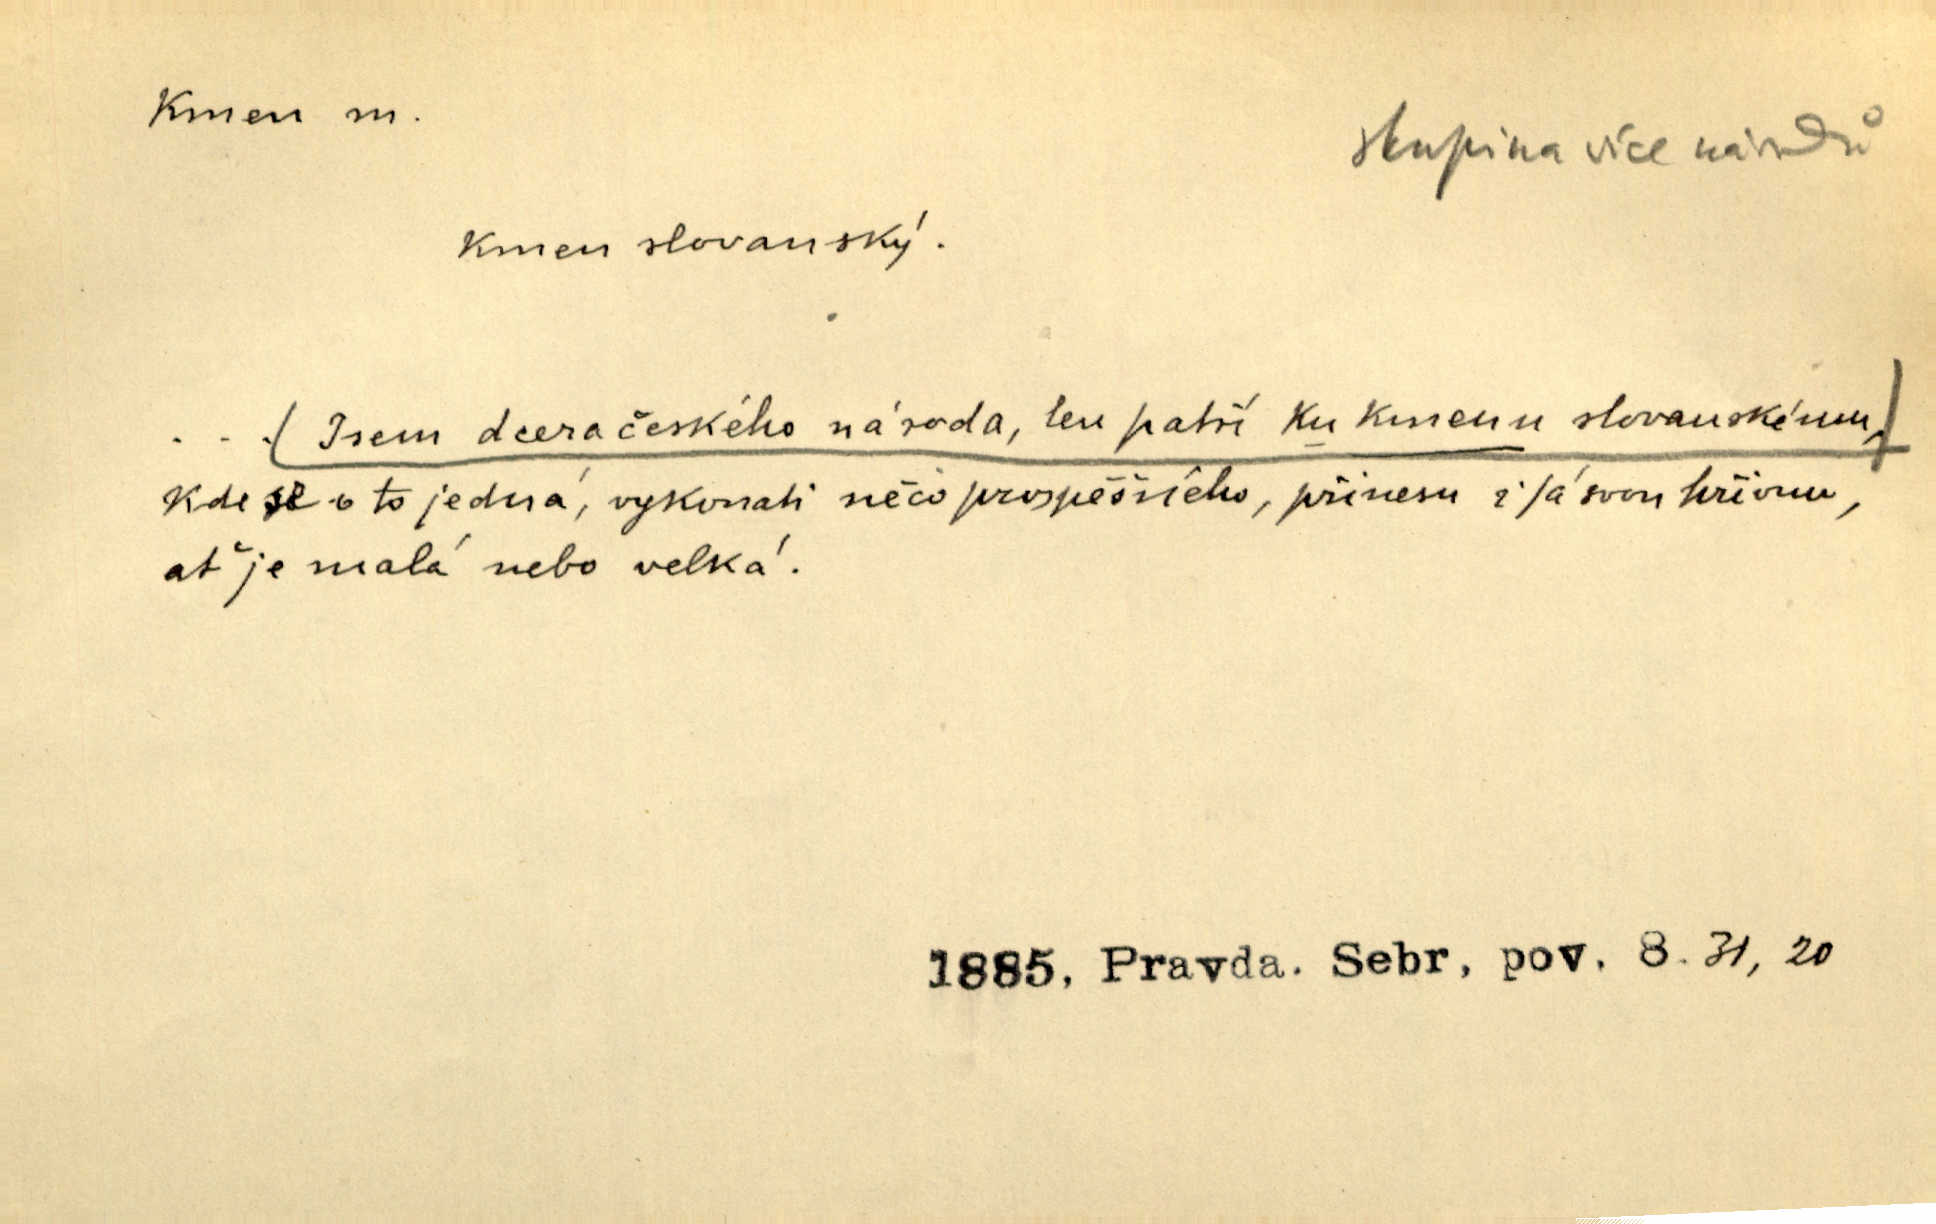 Kmen m.
skupina více národů
Kmen slovanský.
. . . Jsem dcera českého národa, ten patří ku kmenu slovanskému,
kde se o to jedná, vykonati něco prospěšného, přinesu i já svou hřivnu,
ať je malá nebo velká.
1885, Pravda. Sebr, pov. 8. 31, 20